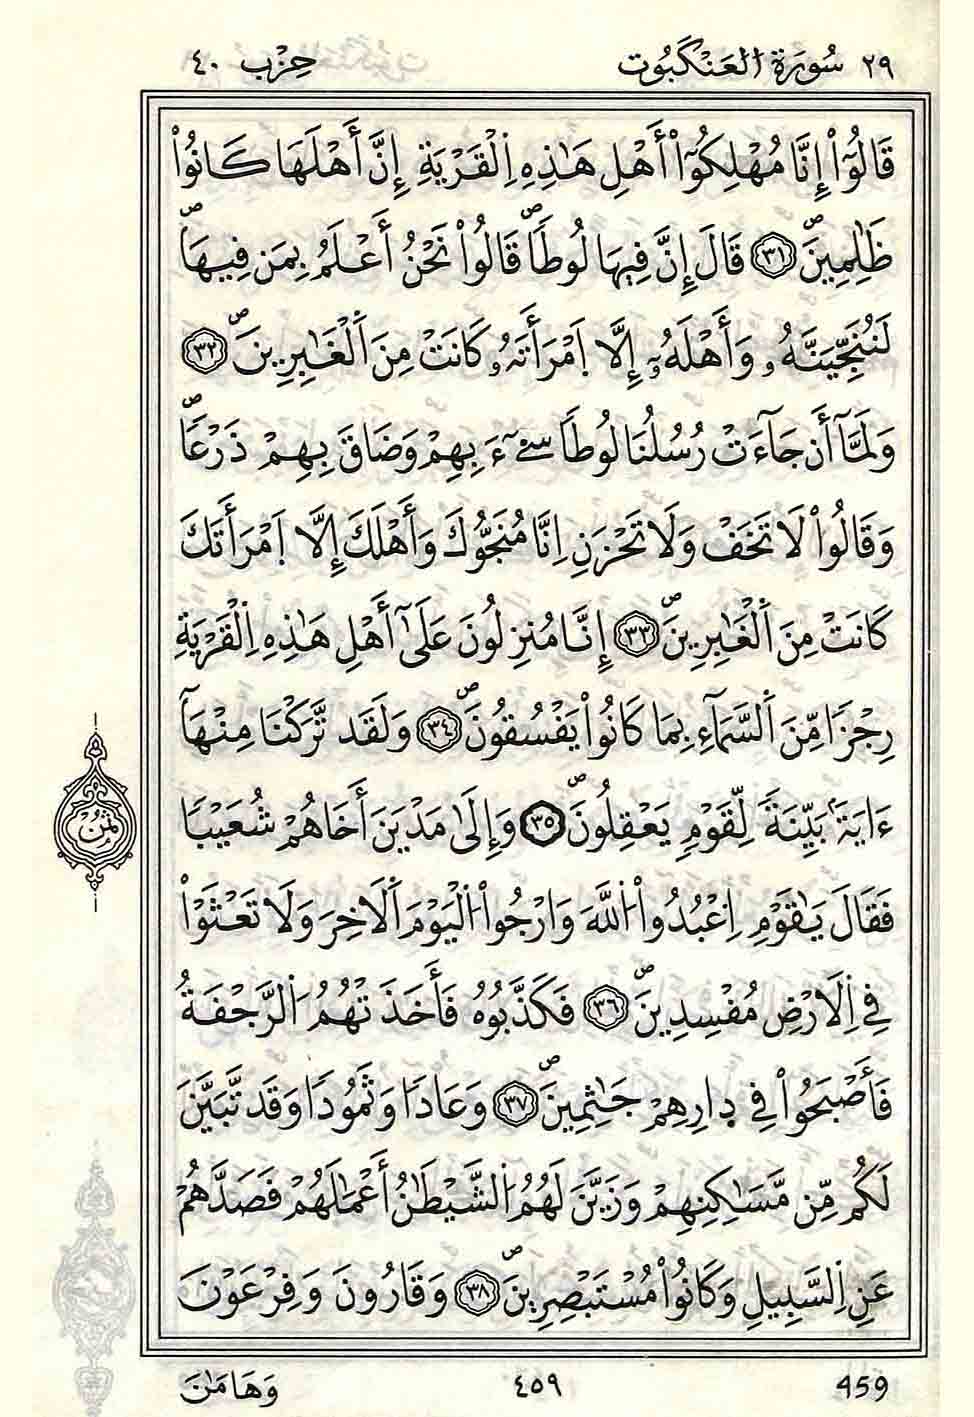 ٢٩ سُورَةُ الْعَنْكَبُوت حِزْب ٤٠
قَالُوٓاْ إِنَّا مُهْلِكُوٓاْ أَهْلِ هَٰذِهِ اِ۬لْقَرْيَةِ إِنَّ أَهْلَهَا كَانُواْ
ظَٰلِمِينَۖ ٣١ قَالَ إِنَّ فِيهَا لُوطاٗۖ قَالُواْ نَحْنُ أَعْلَمُ بِمَن فِيهَاۖ
لَنُنَجِّيَنَّهُۥ وَأَهْلَهُۥٓ إِلَّا اَ۪مْرَأَتَهُۥ كَانَتْ مِنَ اَ۬لْغَٰبِرِينَۖ ٣٢
وَلَمَّآ أَن جَآءَتْ رُسُلُنَا لُوطاٗ سِےٓءَ بِهِمْ وَضَاقَ بِهِمْ ذَرْعاٗۖ
وَقَالُواْ لَا تَخَفْ وَلَا تَحْزَنِ اِنَّا مُنَجُّوكَ وَأَهْلَكَ إِلَّا اَ۪مْرَأَتَكَ
كَانَتْ مِنَ اَ۬لْغَٰبِرِينَۖ ٣٣ إِنَّا مُنزِلُونَ عَلَىٰٓ أَهْلِ هَٰذِهِ اِ۬لْقَرْيَةِ
رِجْزاٗ مِّنَ اَ۬لسَّمَآءِ بِمَا كَانُواْ يَفْسُقُونَۖ ٣٤ وَلَقَد تَّرَكْنَا مِنْهَآ
ءَايَةَۢ بَيِّنَةٗ لِّقَوْمٖ يَعْقِلُونَۖ ٣٥ وَإِلَىٰ مَدْيَنَ أَخَاهُمْ شُعَيْباٗ
فَقَالَ يَٰقَوْمِ اِ۟عْبُدُواْ اُ۬للَّهَ وَارْجُواْ اُ۬لْيَوْمَ اَ۬لَاخِرَ وَلَا تَعْثَوْاْ
فِي اِ۬لَارْضِ مُفْسِدِينَۖ ٣٦ فَكَذَّبُوهُ فَأَخَذَتْهُمُ اُ۬لرَّجْفَةُ
فَأَصْبَحُواْ فِي دِارِهِمْ جَٰثِمِينَۖ ٣٧ وَعَاداٗ وَثَمُوداٗ وَقَد تَّبَيَّنَ
لَكُم مِّن مَّسَٰكِنِهِمْ وَزَيَّنَ لَهُمُ اُ۬لشَّيْطَٰنُ أَعْمَٰلَهُمْ فَصَدَّهُمْ
عَنِ اِ۬لسَّبِيلِ وَكَانُواْ مُسْتَبْصِرِينَۖ ٣٨ وَقَارُونَ وَفِرْعَوْنَ
ثُمُن
وَهَامَٰنَ ٤٥٩ 459